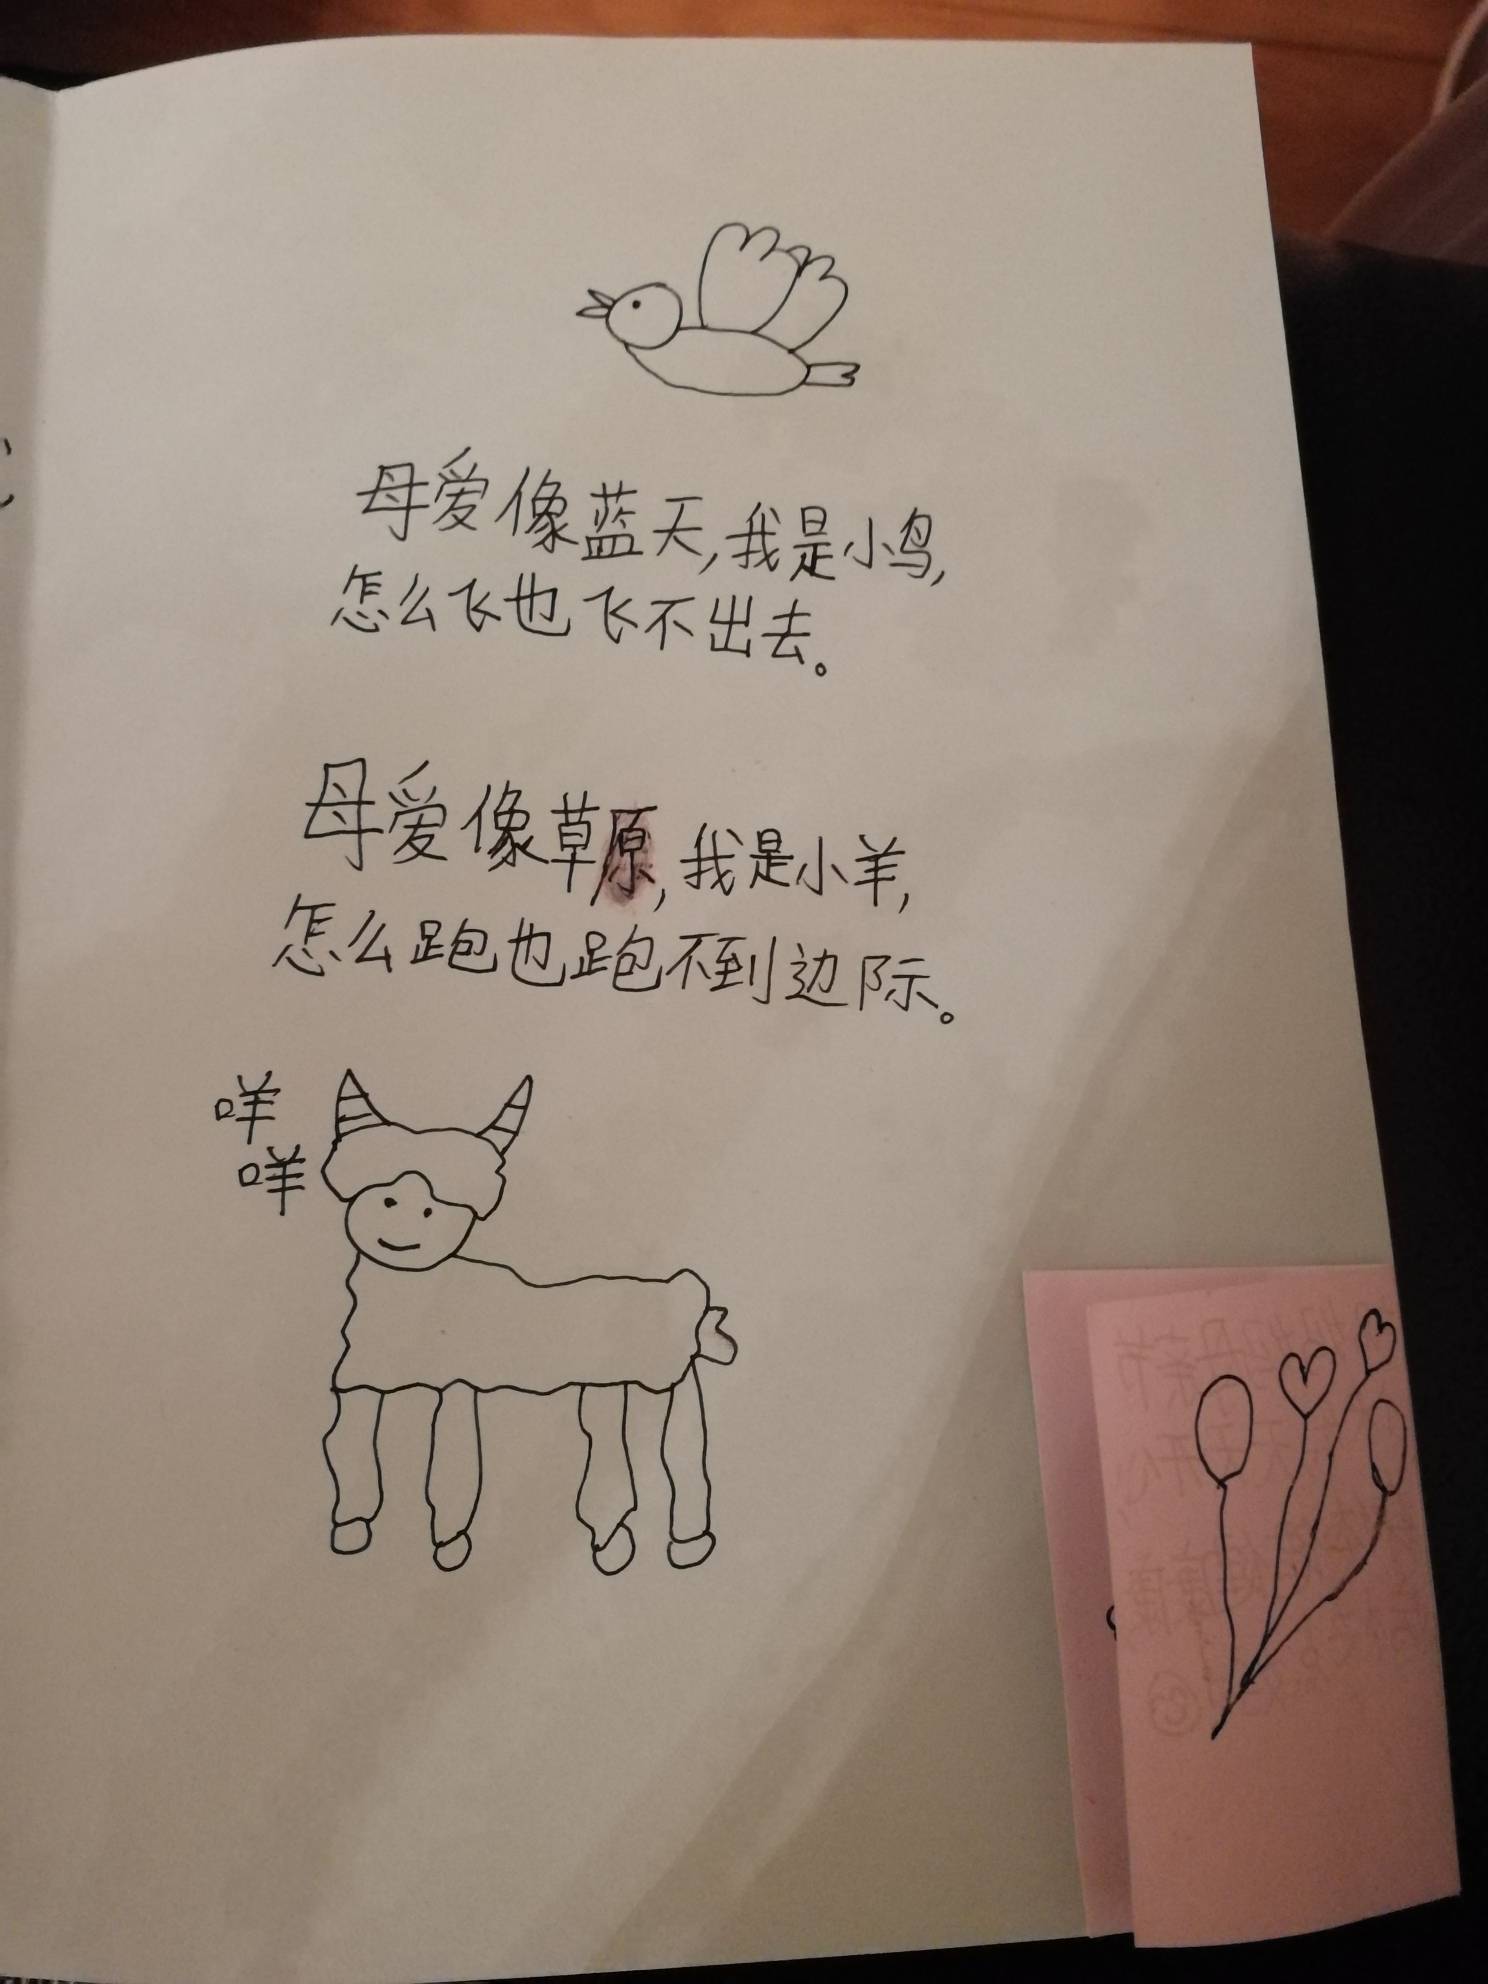 母爱像蓝天,我是小鸟,
怎么飞也飞不出去。
母爱像草原,我是小羊,
怎么跑也跑不到边际。
咩
咩